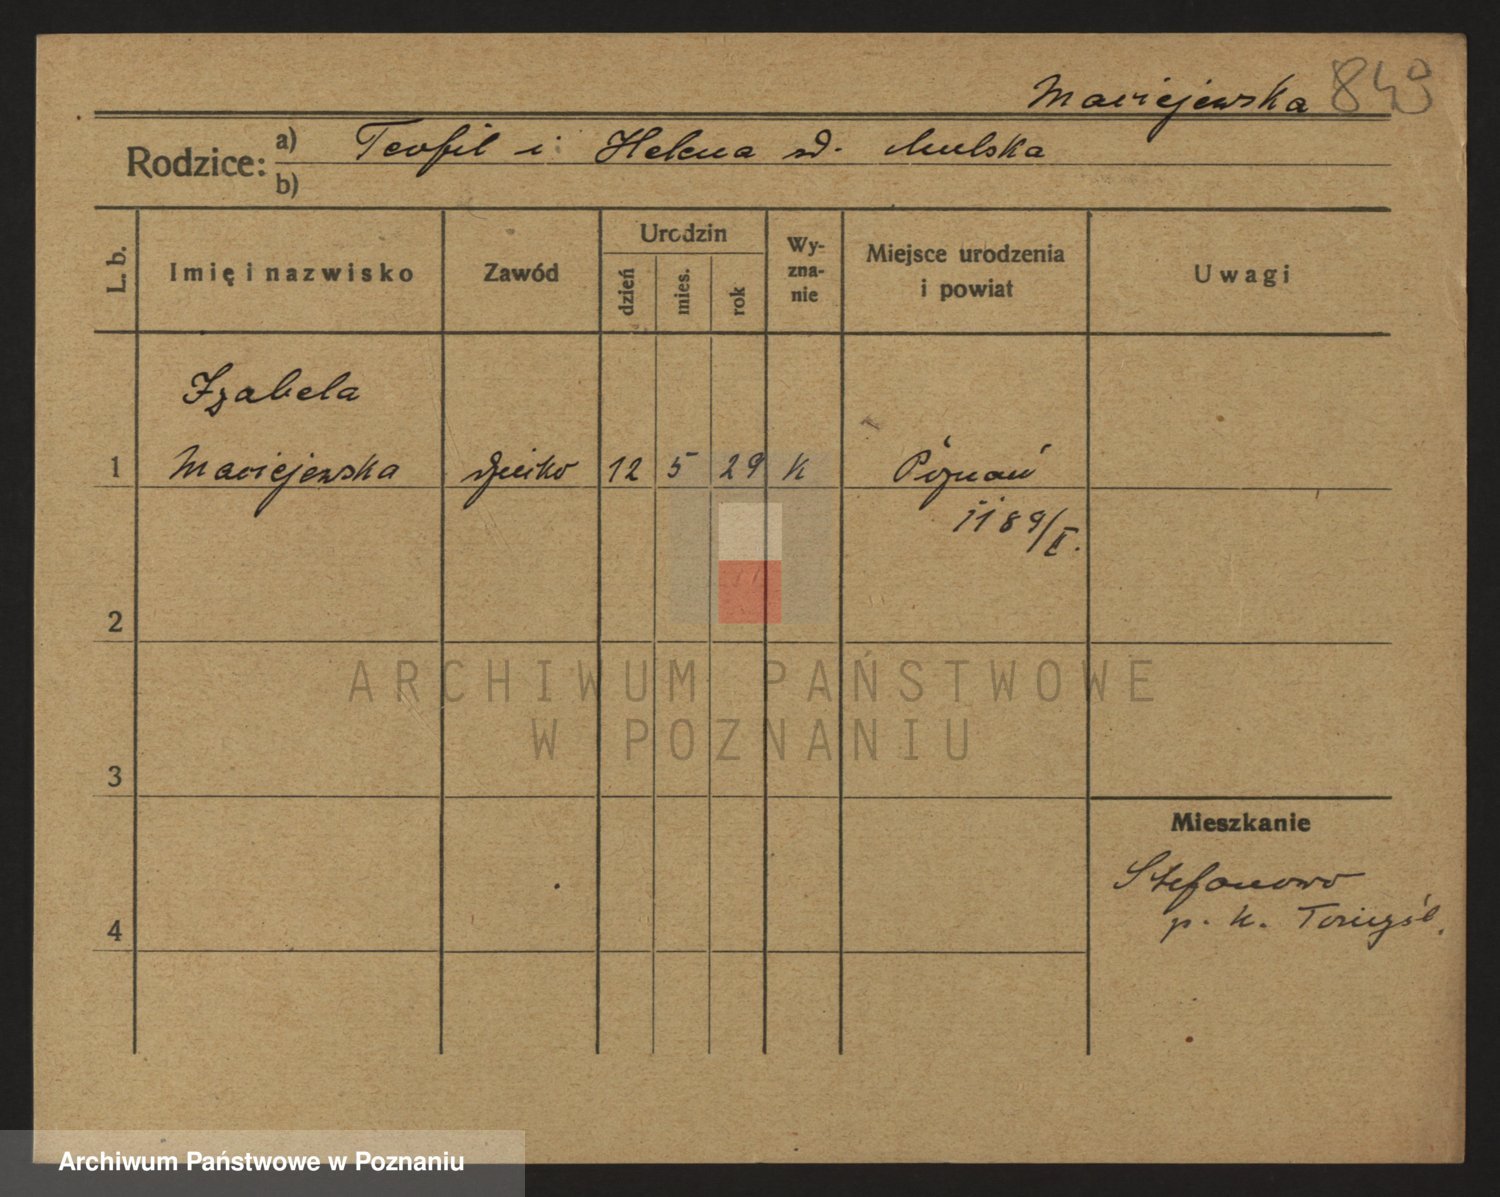 Maciejewska 849
Rodzice: a) Teofil i Helena
b)
L. b.
Imię i nazwisko
Zawód
Urodzin
dzień
mies.
rok
Wy-
zna-
nie
Miejsce urodzenia
i powiat
Uwagi
Izabela
1 Maciejewska dziecko 12 5 29 K Poznań
1189/II.
2
3
4
Mieszkanie
Stefanowo
p. K.
ARCHIWUM PAŃSTWOWE
W POZNANIU
Archiwum Państwowe w Poznaniu